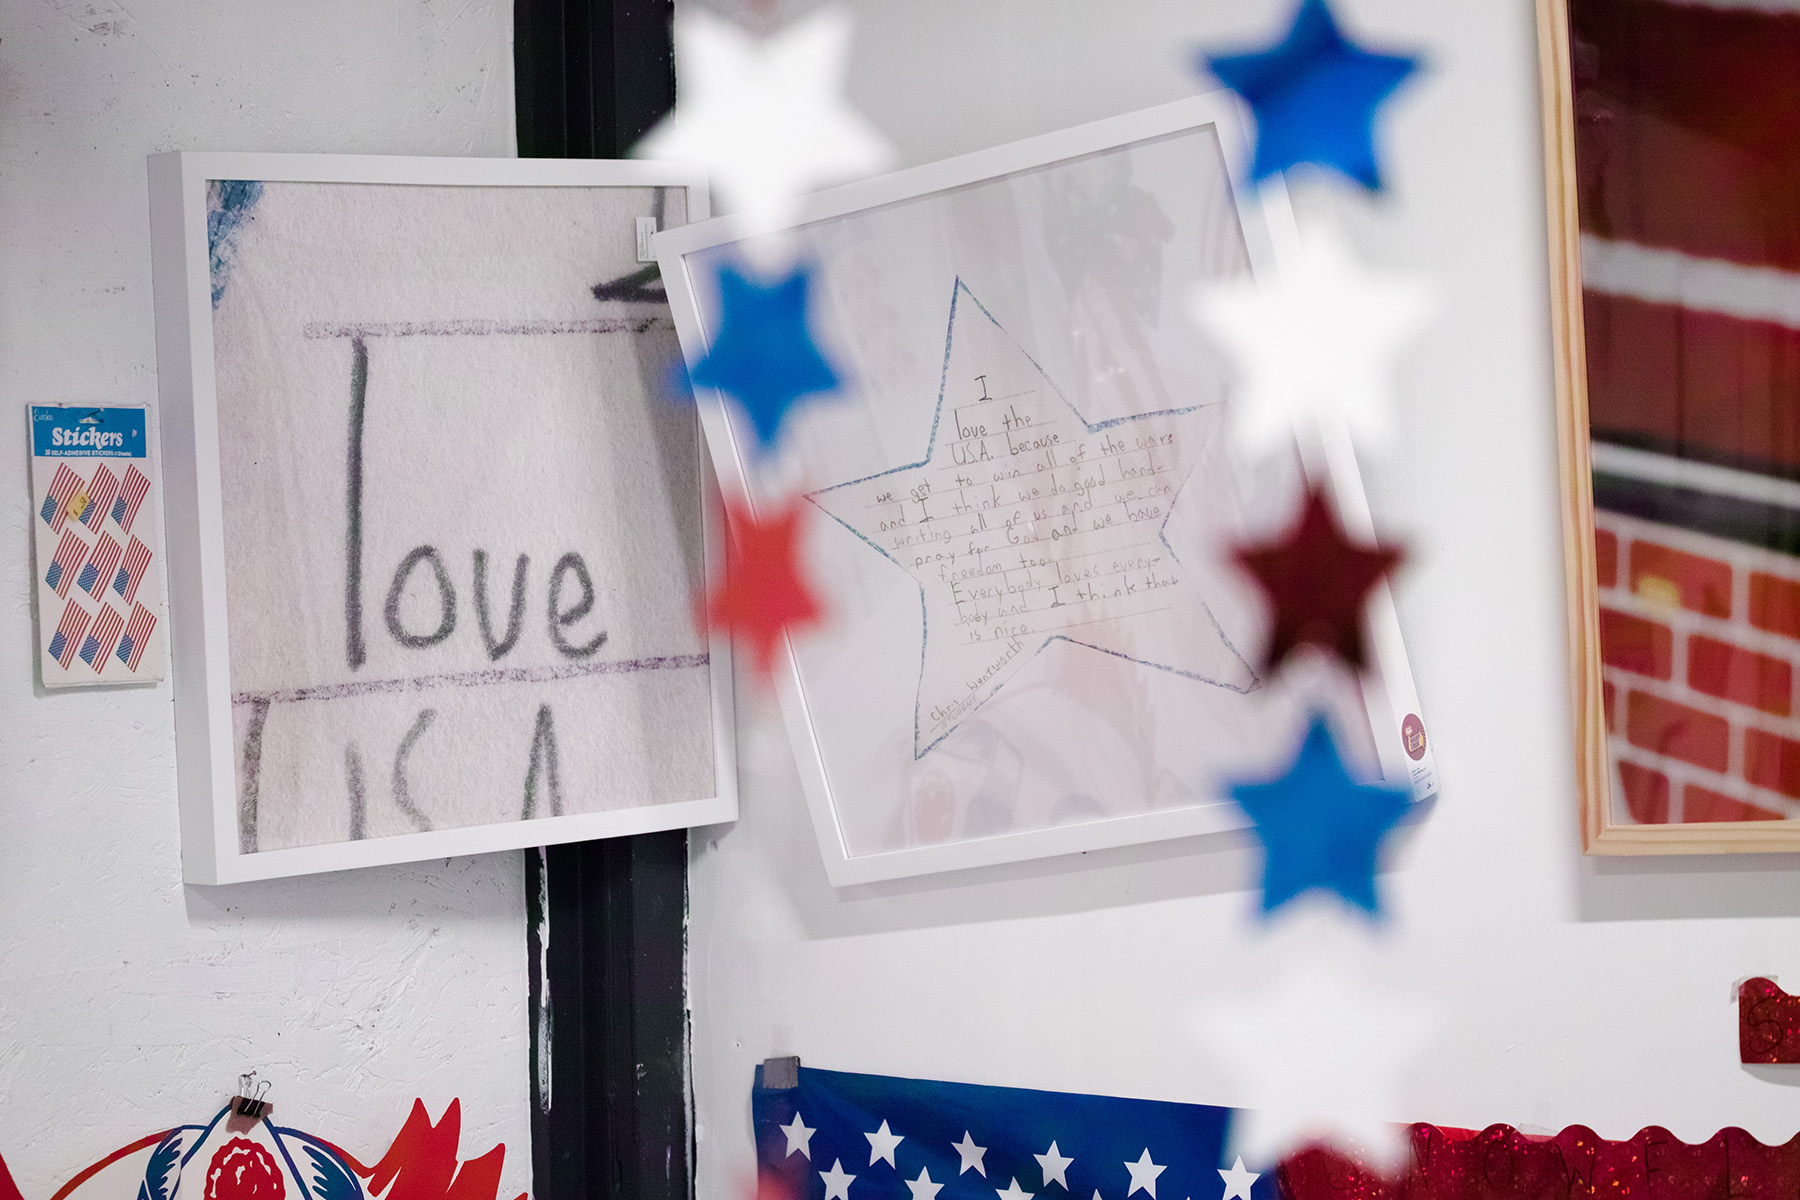 Stickers
35 SELF-ADHESIVE STICKERS (4 Sheets)
love
USA
I
love the
U.S.A. because
we get to win all of the wars
and I think we do good hand-
writing all of us and we can
pray for God and we have
freedom too.
Everybody loves every-
body and I think that
is nice.
Chris Wentworth
student
S
N O W F L